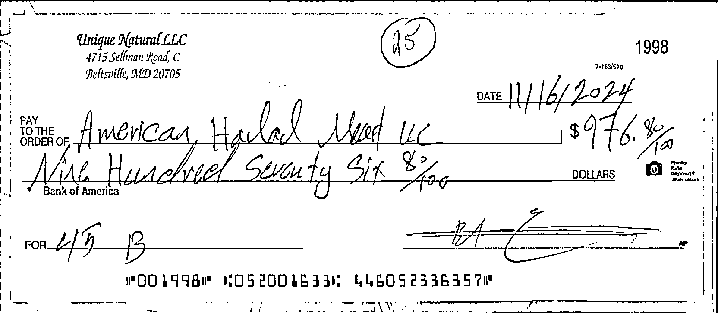 Unique Natural LLC
4715 Sellman Road, C
Beltsville, MD 20705
25
1998
7-163/520
DATE 11/16/2024
PAY TO THE ORDER OF American Halal Meat LLC $ 976.80/100
Nine Hundred Seventy Six 80/100 DOLLARS
Bank of America
FOR 45 B
⑈001998⑈ ⑆052001633⑆ 446052336357⑈